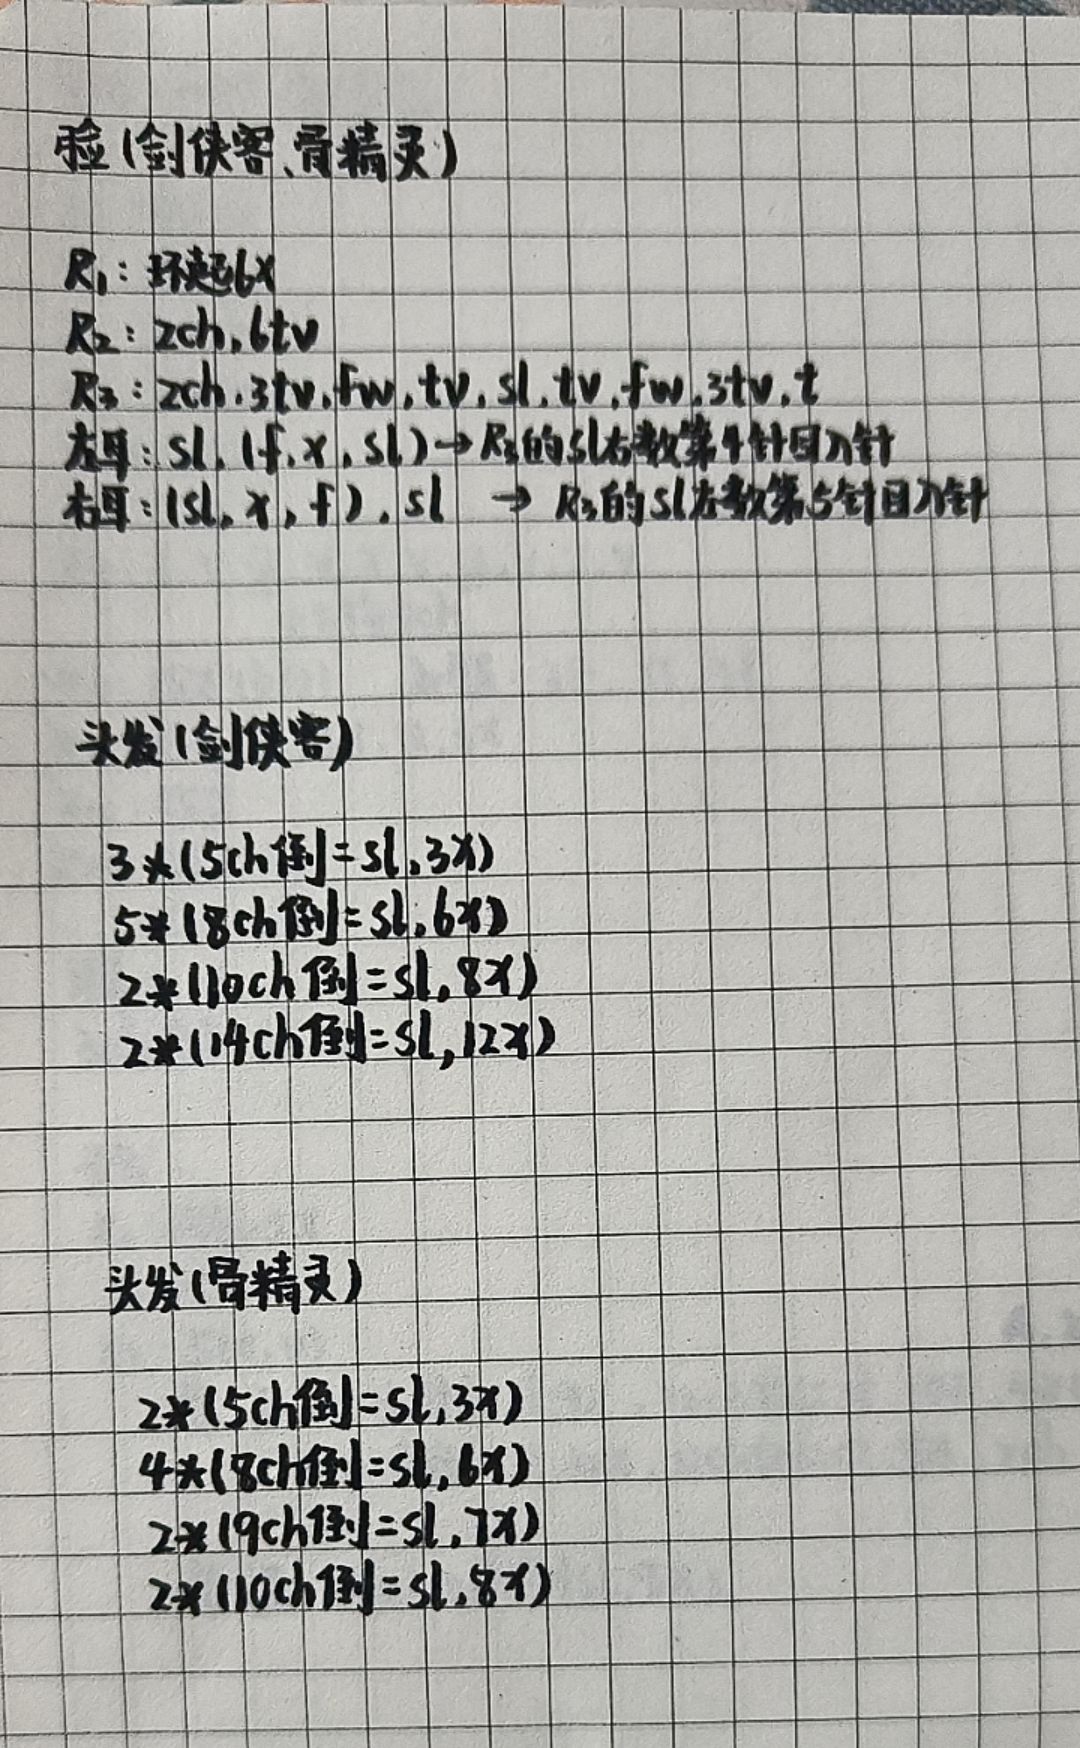 脸(剑侠客、骨精灵)
R1:环起6x
R2:2ch,6tv
R3:2ch,3tv,fw,tv,sl,tv,fw,3tv,t
左耳:sl,(f,x,sl)→R3的sl右数第4针目入针
右耳:(sl,x,f),sl → R3的sl左数第5针目入针
头发(剑侠客)
3*(5ch倒=sl,3x)
5*(8ch倒=sl,6x)
2*(10ch倒=sl,8x)
2*(14ch倒=sl,12x)
头发(骨精灵)
2*(5ch倒=sl,3x)
4*(8ch倒=sl,6x)
2*(9ch倒=sl,7x)
2*(10ch倒=sl,8x)